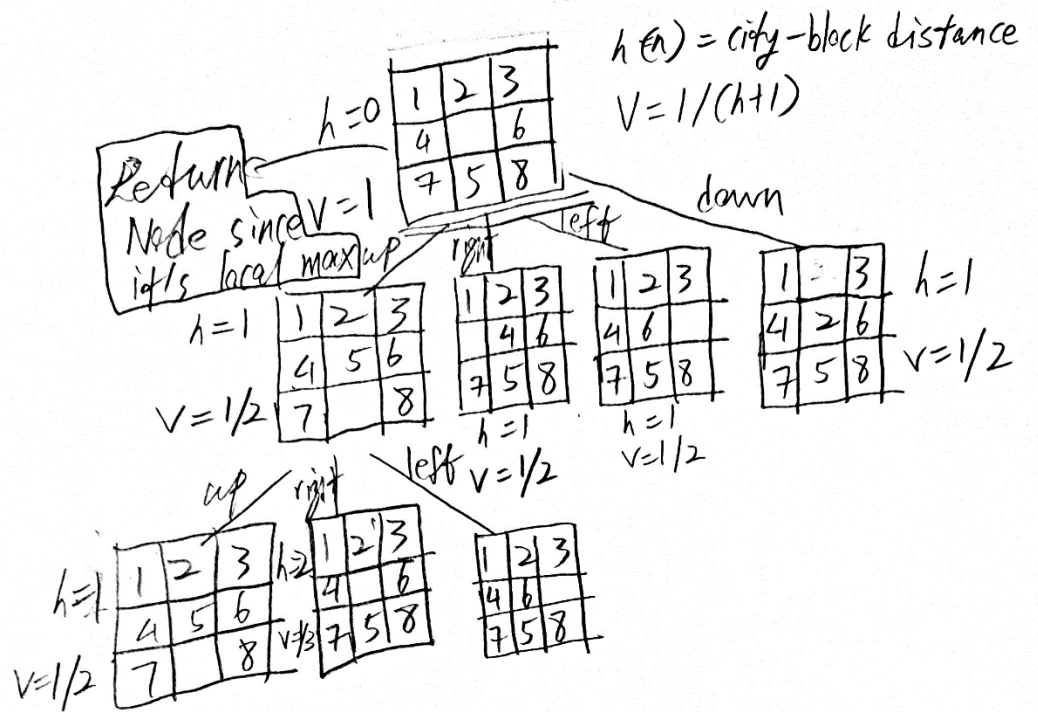 h(n) = city-block distance
V = 1/(h+1)
h=0
1 2 3
4 6
7 5 8
Return
Node since
it's local max
V=1
up
right
left
down
h=1
V=1/2
1 2 3
4 5 6
7 8
1 2 3
4 6
7 5 8
h=1
V=1/2
1 2 3
4 6
7 5 8
h=1
V=1/2
1 3
4 2 6
7 5 8
h=1
V=1/2
up
right
left
h=1
V=1/2
1 2 3
4 5 6
7 8
h=2
V=1/3
1 2 3
4 6
7 5 8
1 2 3
4 6
7 5 8